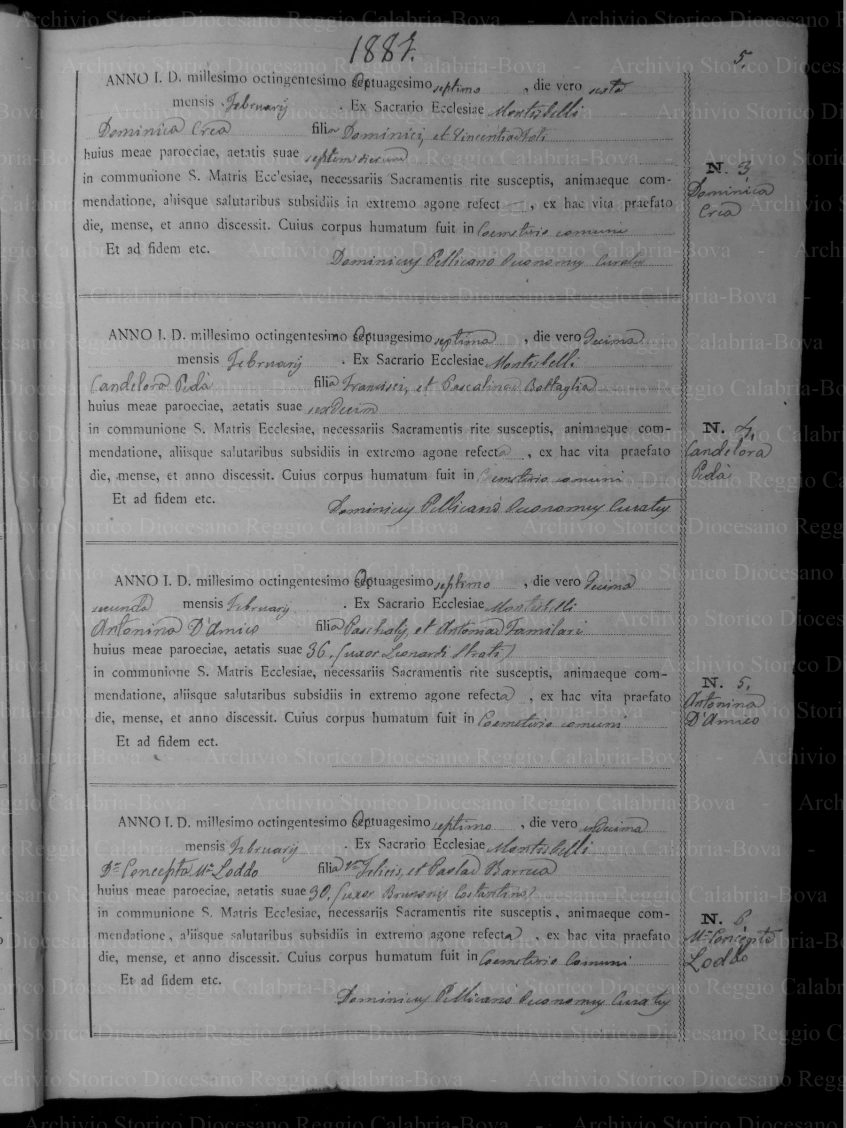 1887.
5.
ANNO I. D. millesimo octingentesimo Octuagesimo septimo , die vero sexta
mensis Februarij . Ex Sacrario Ecclesiae Montisbelli
Dominica Crea filia Dominici, et Vincentia Foti
huius meae paroeciae, aetatis suae septem dierum
in communione S. Matris Ecclesiae, necessariis Sacramentis rite susceptis, animaeque com-
mendatione, aliisque salutaribus subsidiis in extremo agone refect , ex hac vita praefato
die, mense, et anno discessit. Cuius corpus humatum fuit in Coemeterio comuni
Et ad fidem etc.
Dominicus Pellicanò Œconomus Curatus
N. 3
Dominica
Crea
ANNO I. D. millesimo octingentesimo Octuagesimo septimo , die vero Decima
mensis Februarij . Ex Sacrario Ecclesiae Montisbelli
Candelora Pedà filia Francisci, et Pascalinae Battaglia
huius meae paroeciae, aetatis suae
in communione S. Matris Ecclesiae, necessariis Sacramentis rite susceptis, animaeque com-
mendatione, aliisque salutaribus subsidiis in extremo agone refecta , ex hac vita praefato
die, mense, et anno discessit. Cuius corpus humatum fuit in Coemeterio comuni
Et ad fidem etc.
Dominicus Pellicanò Œconomus Curatus
N. 4.
Candelora
Pedà
ANNO I. D. millesimo octingentesimo Octuagesimo septimo , die vero Decima
secunda mensis Februarij . Ex Sacrario Ecclesiae Montisbelli
Antonina D'Amico filia Paschalis, et Antoniae Familari
huius meae paroeciae, aetatis suae 36. (uxor Leonardi Strati)
in communione S. Matris Ecclesiae, necessariis Sacramentis rite susceptis, animaeque com-
mendatione, aliisque salutaribus subsidiis in extremo agone refecta , ex hac vita praefato
die, mense, et anno discessit. Cuius corpus humatum fuit in Coemeterio comuni
Et ad fidem ect.
N. 5.
Antonina
D'Amico
ANNO I. D. millesimo octingentesimo Octuagesimo septimo , die vero undecima
mensis Februarij . Ex Sacrario Ecclesiae Montisbelli
Dna Concepta Ma Loddo filia Felicis, et Paolae Barreca
huius meae paroeciae, aetatis suae 30. (uxor Brunonis Costantino)
in communione S. Matris Ecclesiae, necessariis Sacramentis rite susceptis, animaeque com-
mendatione, aliisque salutaribus subsidiis in extremo agone refecta , ex hac vita praefato
die, mense, et anno discessit. Cuius corpus humatum fuit in Coemeterio Comuni
Et ad fidem etc.
Dominicus Pellicanò Œconomus Curatus
N. 6
Ma Concepta
Loddo